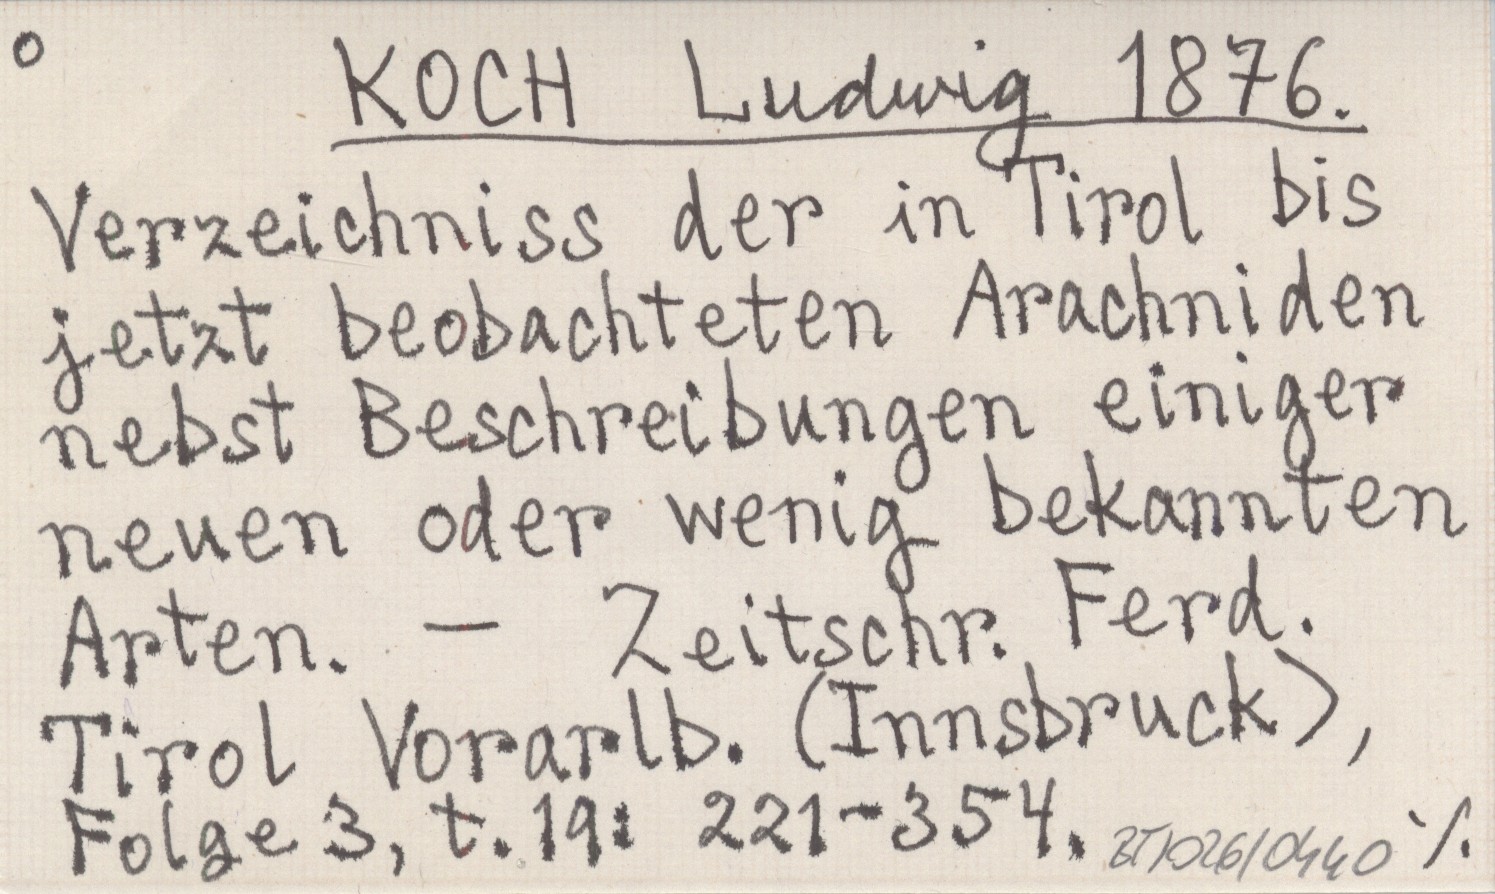 o
KOCH Ludwig 1876.
Verzeichniss der in Tirol bis
jetzt beobachteten Arachniden
nebst Beschreibungen einiger
neuen oder wenig bekannten
Arten. — Zeitschr. Ferd.
Tirol Vorarlb. (Innsbruck),
Folge 3, t. 19: 221-354. ./.